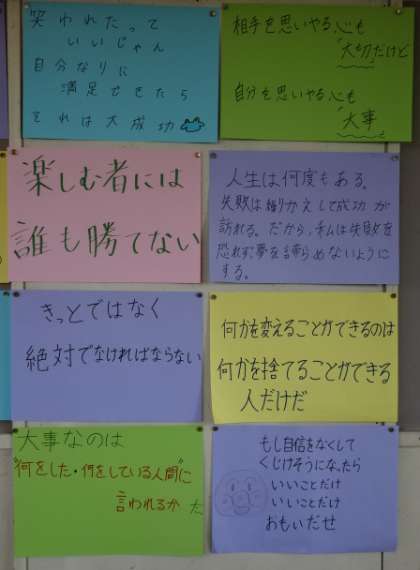 笑われたって
いいじゃん
自分なりに
満足できたら
それは大成功
相手を思いやる心も
"大切"だけど
自分を思いやる心も
"大事"
楽しむ者には
誰も勝てない
人生は何度もある。
失敗は繰りかえして成功が
訪れる。だから、私は失敗を
恐れず夢を諦らめないように
する。
きっとではなく
絶対でなければならない
何かを変えることができるのは
何かを捨てることができる
人だけだ
大事なのは
"何をした・何をしている人間"に
言われるか だ
もし自信をなくして
くじけそうになったら
いいことだけ
いいことだけ
おもいだせ